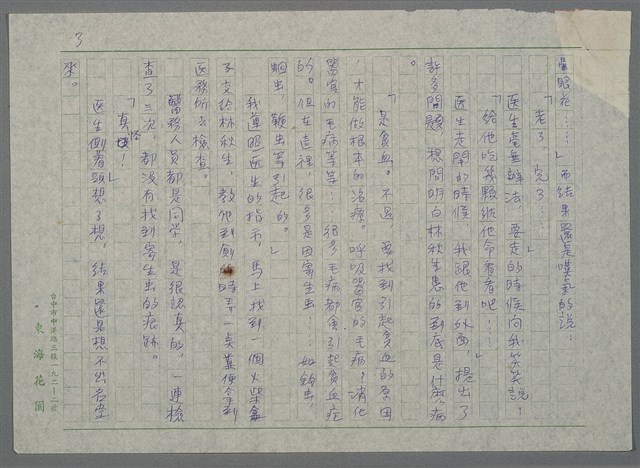 3
暈眼花……」而結果還是嘆氣的說：
「老了，完了…」
医生毫無辦法，要走的時候向我笑笑說：
「給他吃幾顆維他命看看吧……」
医生走開的時候，我跟他到外面，提出了
許多問題，想問明白林秋生患的到底是什麼病
。
「是貧血。不過，要找到引起貧血的原因
，才能做根本的治療。呼吸器官的毛病，消化
器官的毛病等等……很多毛病都會引起貧血症
的。但在這裡，很多是因寄生虫……如鈎虫，
蛔虫，鞭虫等引起的。」
我遵照医生的指示，馬上找到一個火柴盒
子交給林秋生，教他到廁所時弄一点糞便拿到
医務所去檢查。
醫務人員都是同学，是很認真的，一連檢
查了三次，都没有找到寄生虫的痕跡。
「真怪！」
医生側着頭想了想，結果還是想不出名堂
來。
台中市中港路三段一九二一二號
東海花園